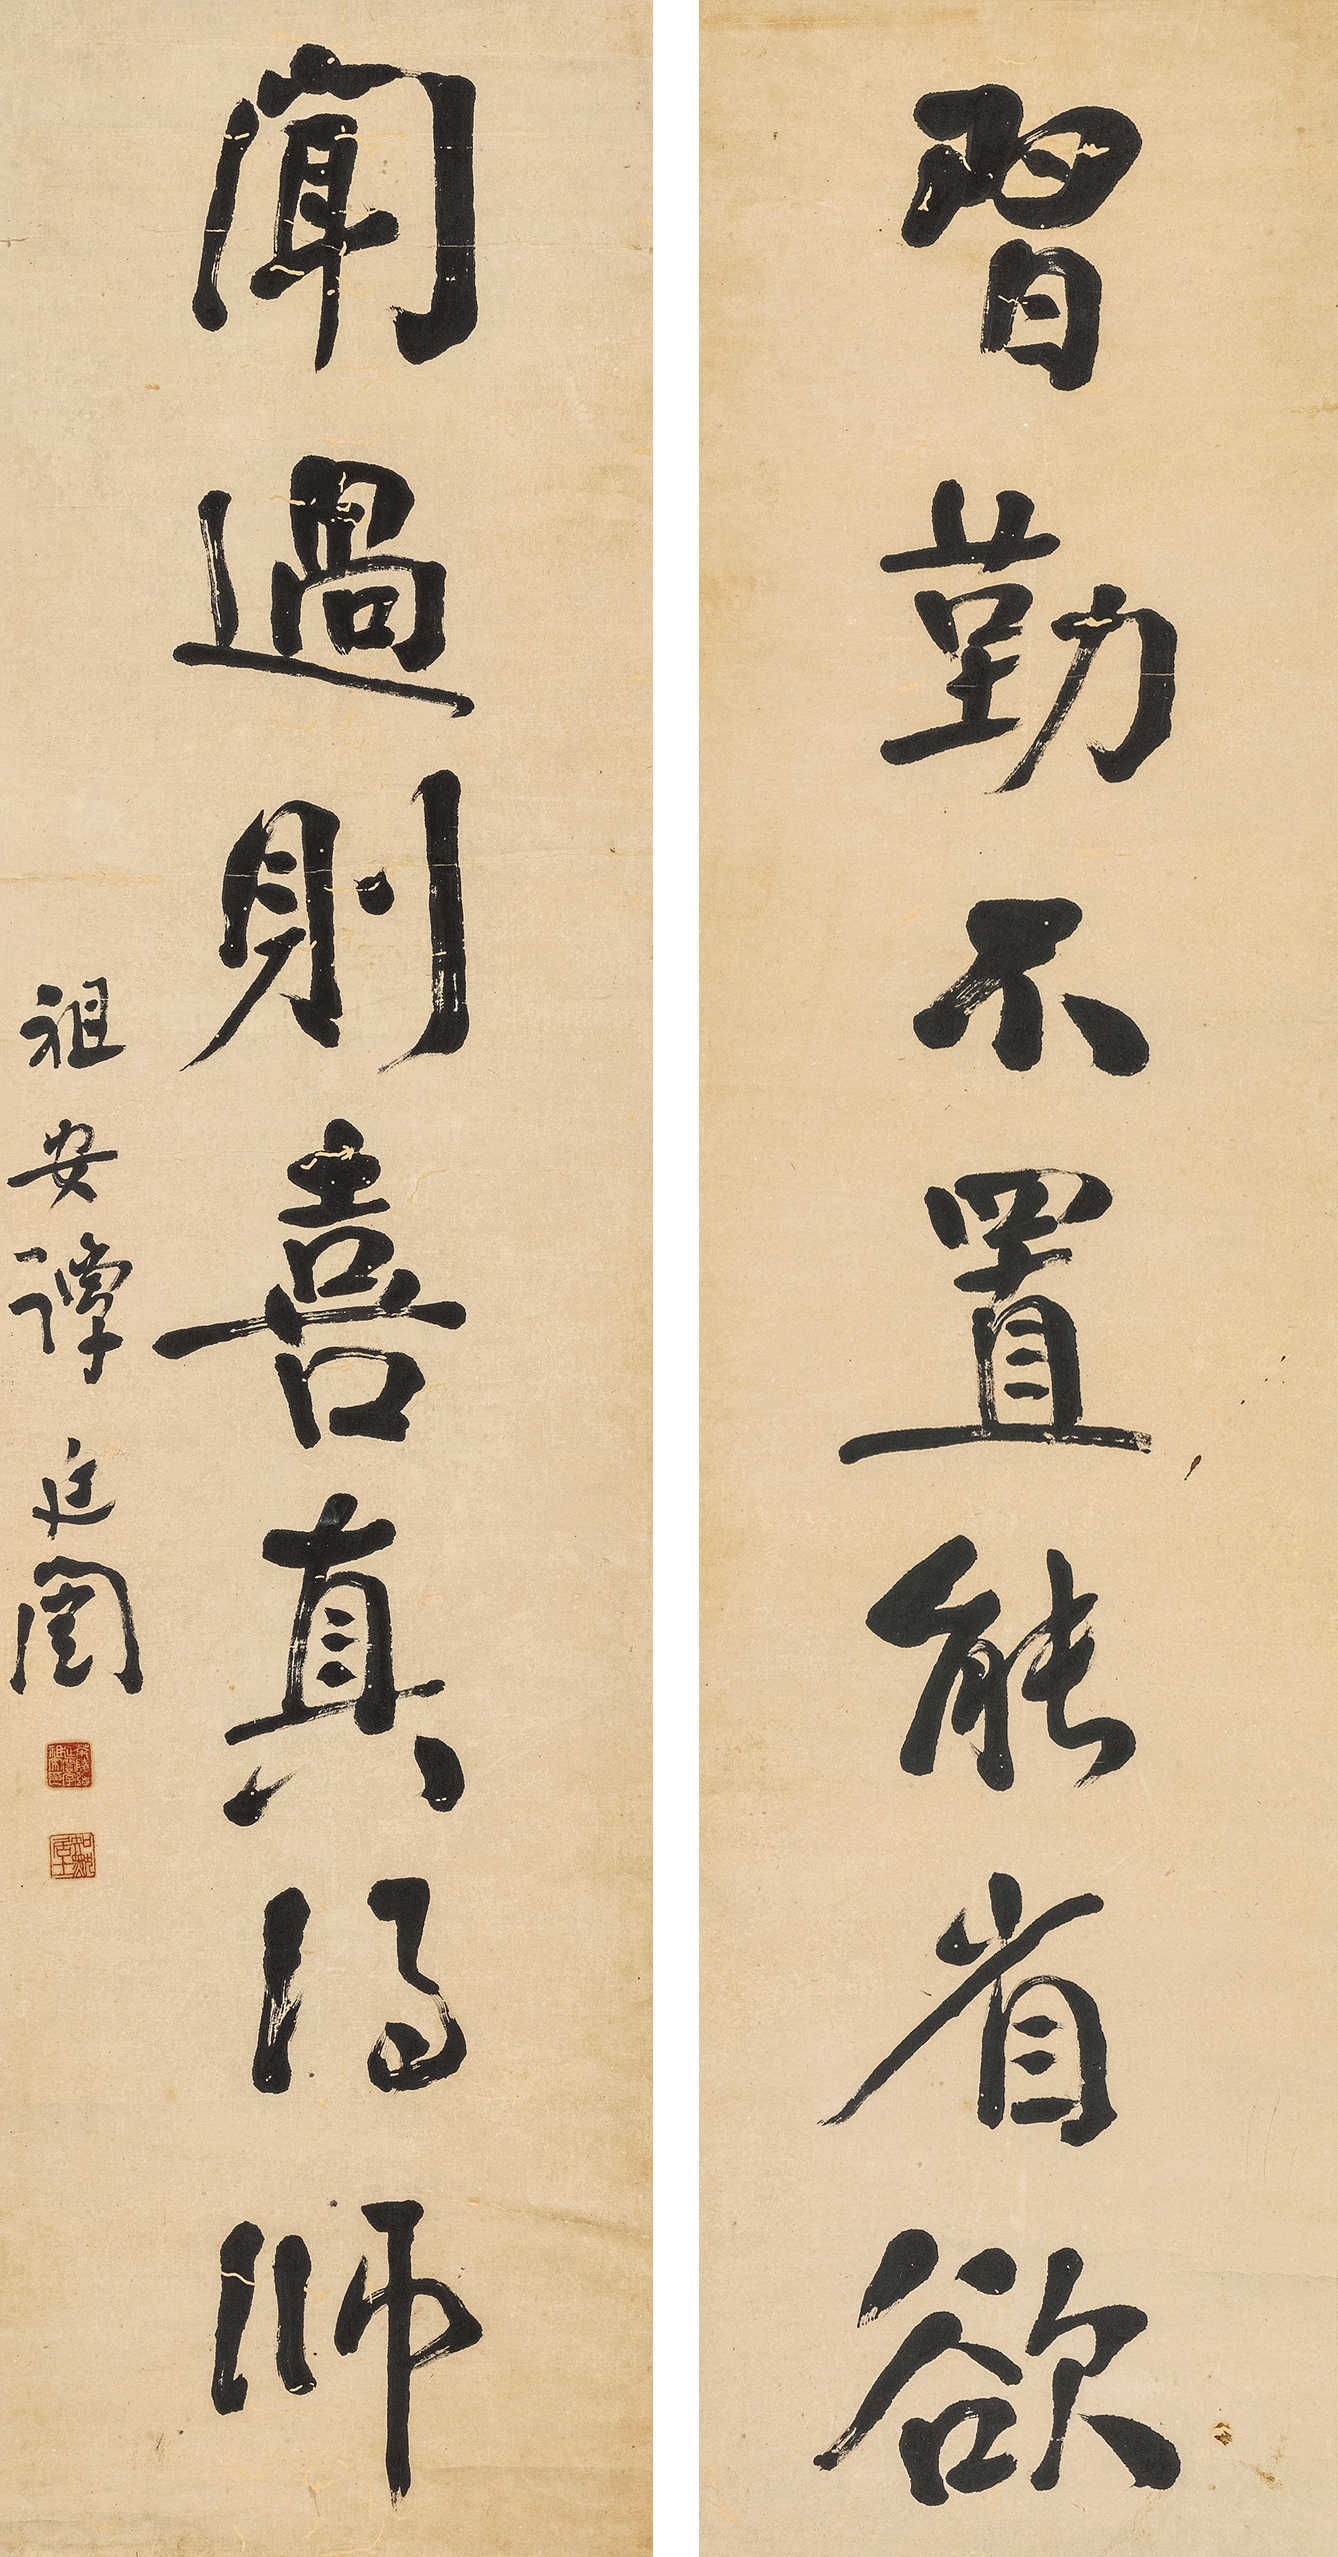 習勤不置能省欲
聞過則喜真得師
祖安譚延闓